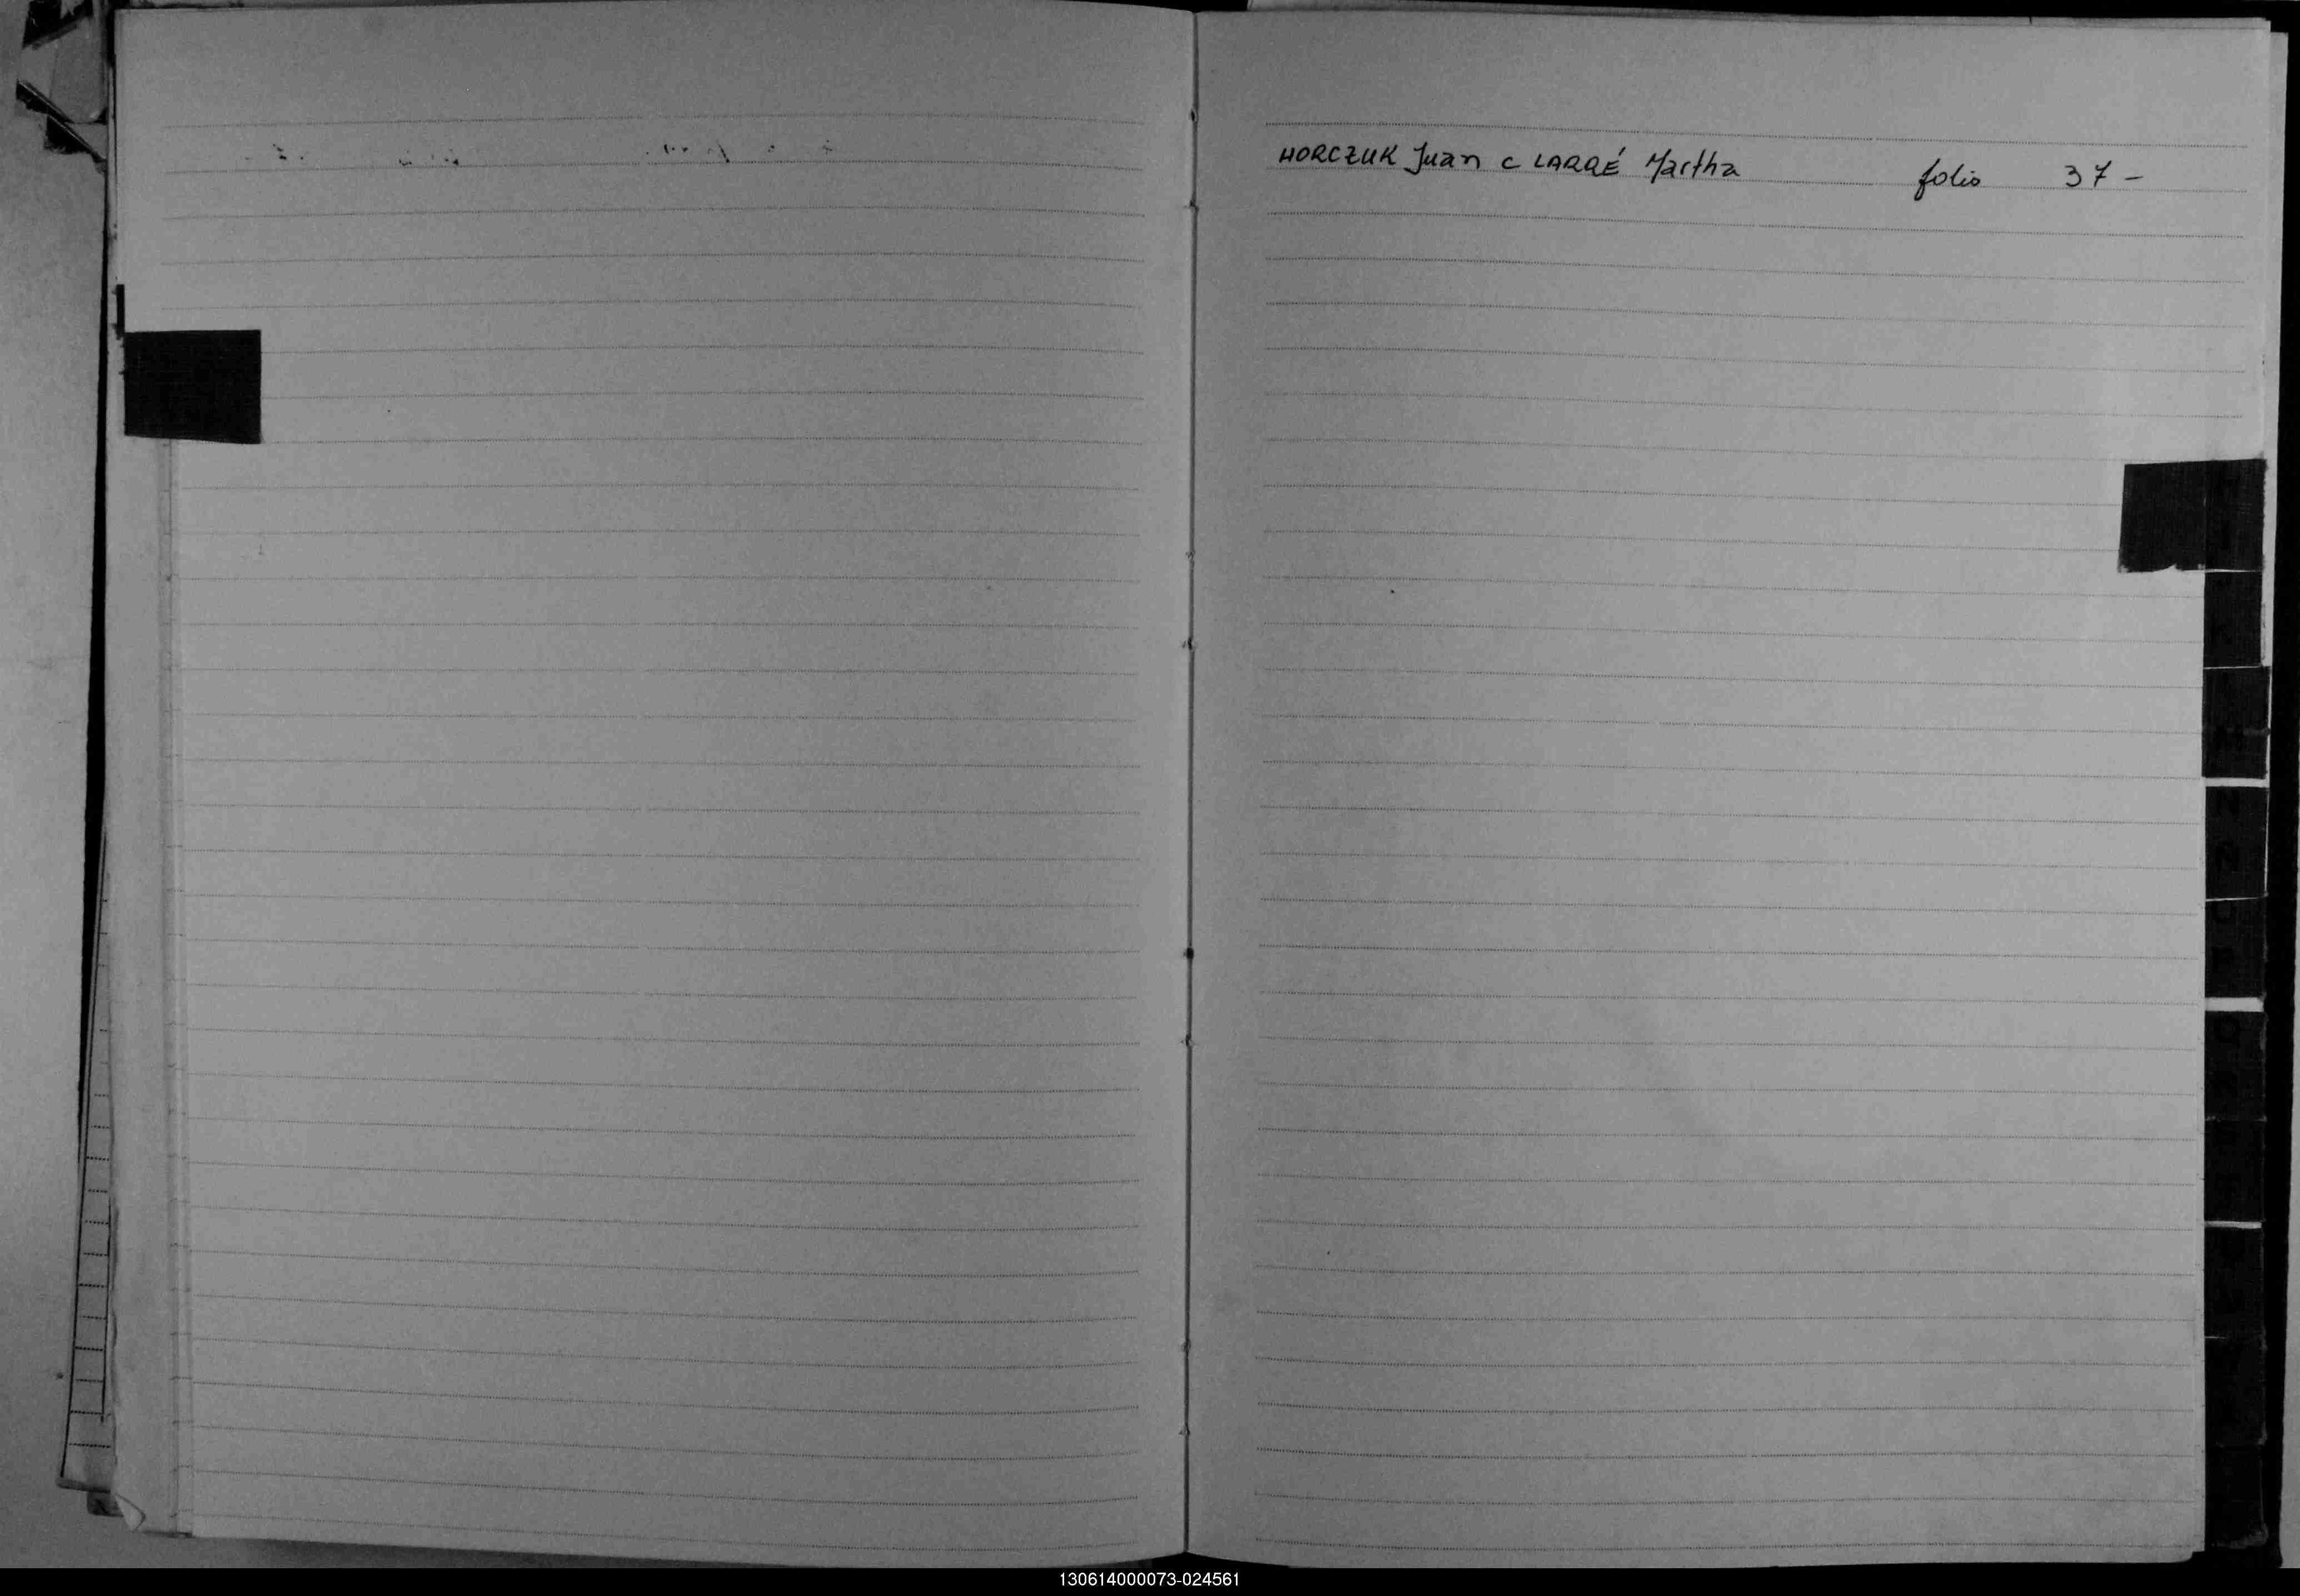 HORCZUK Juan c LARRÉ Martha folio 37 -
130614000073-024561